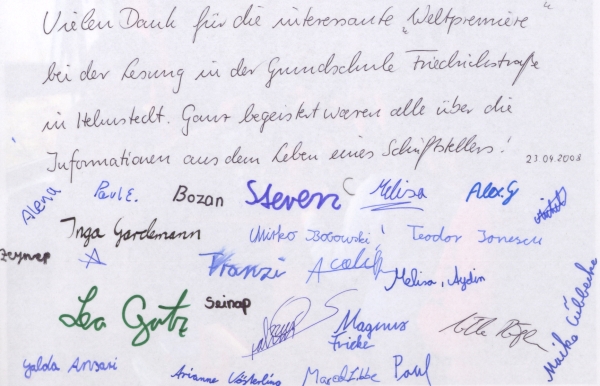 Vielen Dank für die interessante „Weltpremiere"
bei der Lesung in der Grundschule Friedrichstraße
in Helmstedt. Ganz begeistert waren alle über die
Informationen aus dem Leben eines Schriftstellers!
23.04.2008
Alena Paul E. Bozan Steven Melisa Alex.G
Inga Gardemann Mirko Bogowski! Teodor Ionescu
Zeynep Franzi Melisa, Aydin
Lea Gatz Seinap Magnus Fricke Maike Lübbecke
Yalda Ansari Arianne Marcel Libbe Paul